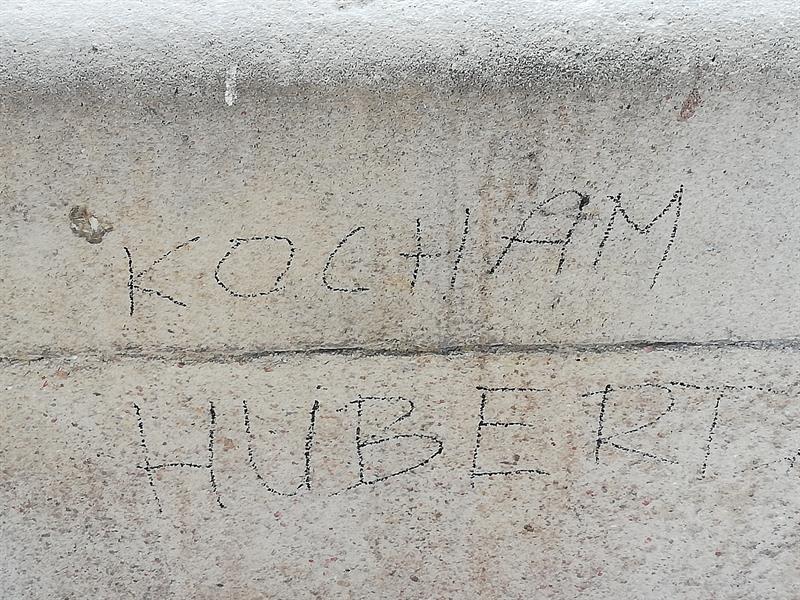 KOCHAM
HUBERT